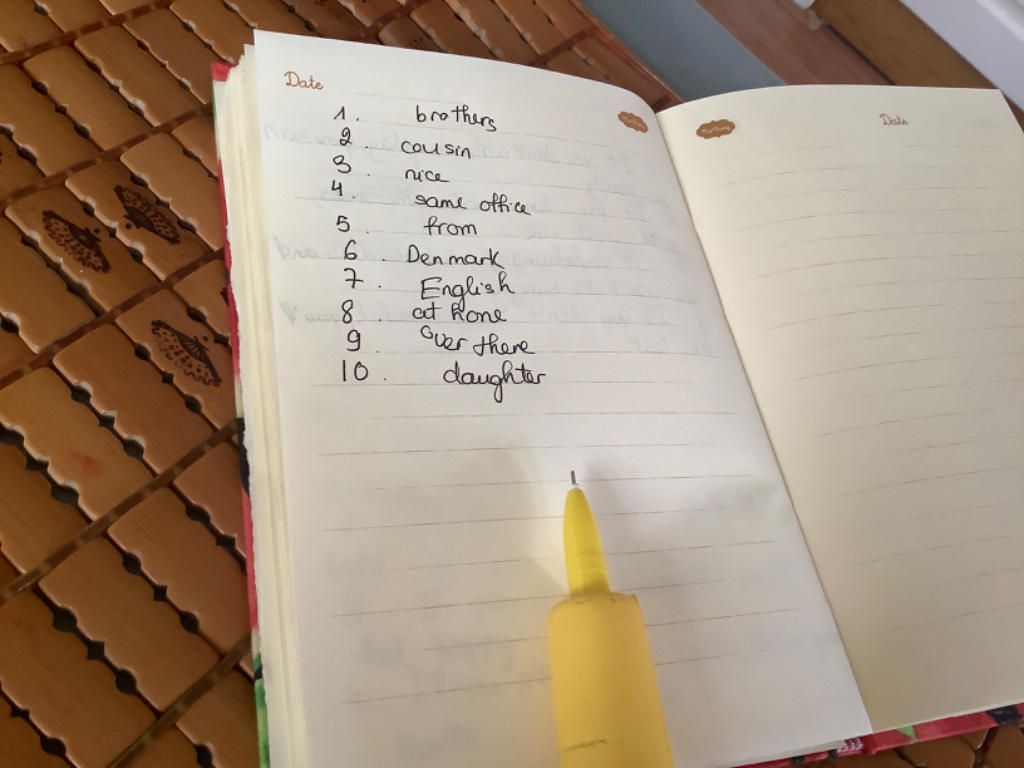 Date
1. brothers
2. cousin
3. nice
4. same office
5. from
6. Denmark
7. English
8. at home
9. over there
10. daughter
Date